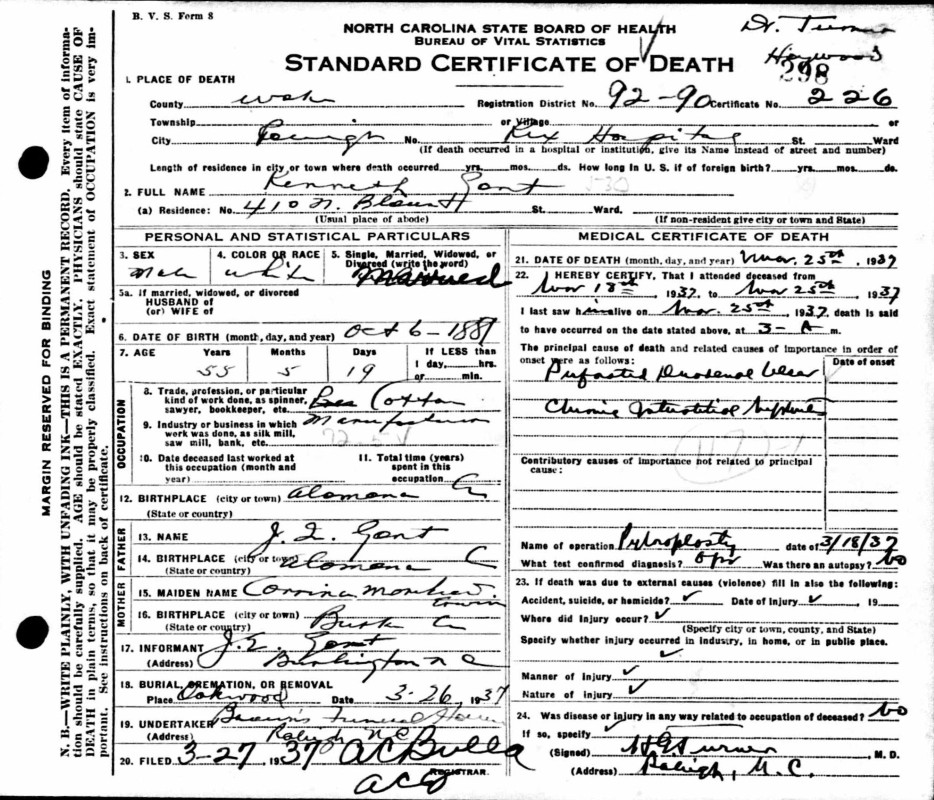 B. V. S. Form 8
NORTH CAROLINA STATE BOARD OF HEALTH
BUREAU OF VITAL STATISTICS
STANDARD CERTIFICATE OF DEATH
Dr. Turner
Haywood
298
MARGIN RESERVED FOR BINDING
N. B.—WRITE PLAINLY, WITH UNFADING INK—THIS IS A PERMANENT RECORD. Every item of informa-
tion should be carefully supplied. AGE should be stated EXACTLY. PHYSICIANS should state CAUSE OF
DEATH in plain terms, so that it may be properly classified. Exact statement of OCCUPATION is very im-
portant. See instructions on back of certificate.
1. PLACE OF DEATH
County Wake Registration District No. 92-90 Certificate No. 226
Township or Village or
City Raleigh No. Rex Hospital St. Ward
(If death occurred in a hospital or institution, give its Name instead of street and number)
Length of residence in city or town where death occurred yrs. mos. ds. How long in U. S. if of foreign birth? yrs. mos. ds.
2. FULL NAME Kenneth Gant
(a) Residence: No. 410 N. Blount St. Ward.
(Usual place of abode) (If non-resident give city or town and State)
PERSONAL AND STATISTICAL PARTICULARS
3. SEX 4. COLOR OR RACE 5. Single, Married, Widowed, or
Divorced (write the word)
Male white Married
5a. If married, widowed, or divorced
HUSBAND of
(or) WIFE of
6. DATE OF BIRTH (month, day, and year) Oct 6-1881
7. AGE Years Months Days If LESS than
1 day, hrs.
or min.
55 5 19
OCCUPATION
8. Trade, profession, or particular
kind of work done, as spinner,
sawyer, bookkeeper, etc. Cotton
9. Industry or business in which
work was done, as silk mill,
saw mill, bank, etc. Manufacturer
10. Date deceased last worked at
this occupation (month and
year)
11. Total time (years)
spent in this
occupation
12. BIRTHPLACE (city or town) Alamance Co
(State or country)
FATHER
13. NAME J. Q. Gant
14. BIRTHPLACE (city or town) Alamance C
(State or country)
MOTHER
15. MAIDEN NAME Corrina Erwin
16. BIRTHPLACE (city or town) Burke Co
(State or country)
17. INFORMANT Gant
(Address) Burlington N C
18. BURIAL, CREMATION, OR REMOVAL
Place Oakwood Date 3-26, 1937
19. UNDERTAKER Brown's Funeral Home
(Address) Raleigh N.C.
20. FILED 3-27 1937 A C Bulla
REGISTRAR.
ACB
MEDICAL CERTIFICATE OF DEATH
21. DATE OF DEATH (month, day, and year) Mar. 25th, 1937
22. I HEREBY CERTIFY, That I attended deceased from
Mar 18th, 1937, to Mar 25th, 1937
I last saw him alive on Mar. 25th 1937, death is said
to have occurred on the date stated above, at 3-A m.
The principal cause of death and related causes of importance in order of
onset were as follows:
Date of onset
Perforated Duodenal Ulcer
Chronic Interstitial Nephritis
Contributory causes of importance not related to principal
cause:
Name of operation Pyloroplasty date of 3/18/37
What test confirmed diagnosis? Opr Was there an autopsy? No
23. If death was due to external causes (violence) fill in also the following:
Accident, suicide, or homicide? ✓ Date of Injury ✓, 19
Where did Injury occur? ✓
(Specify city or town, county, and State)
Specify whether injury occurred in industry, in home, or in public place.
✓
Manner of Injury ✓
Nature of Injury ✓
24. Was disease or injury in any way related to occupation of deceased? No
If so, specify ✓
(Signed) H G Turner, M. D.
(Address) Raleigh, N. C.